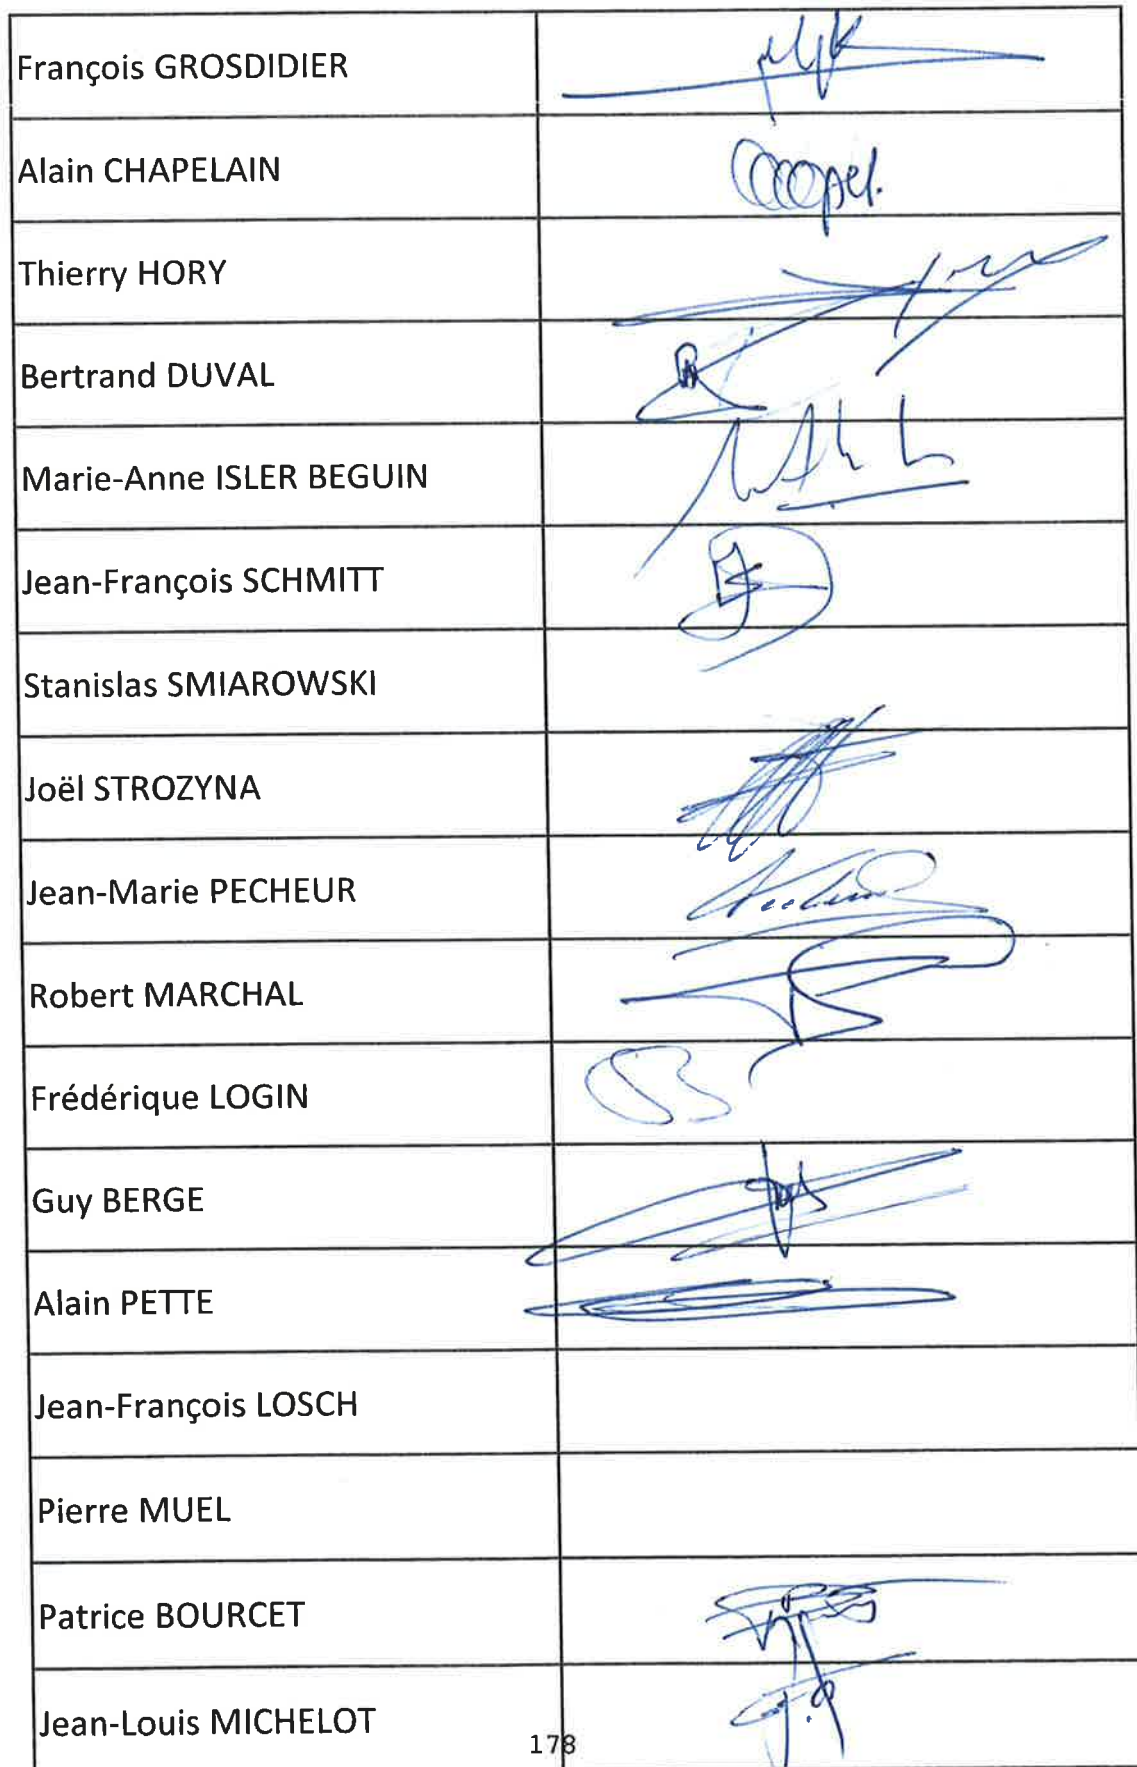 François GROSDIDIER
Alain CHAPELAIN
Thierry HORY
Bertrand DUVAL
Marie-Anne ISLER BEGUIN
Jean-François SCHMITT
Stanislas SMIAROWSKI
Joël STROZYNA
Jean-Marie PECHEUR
Robert MARCHAL
Frédérique LOGIN
Guy BERGE
Alain PETTE
Jean-François LOSCH
Pierre MUEL
Patrice BOURCET
Jean-Louis MICHELOT
178